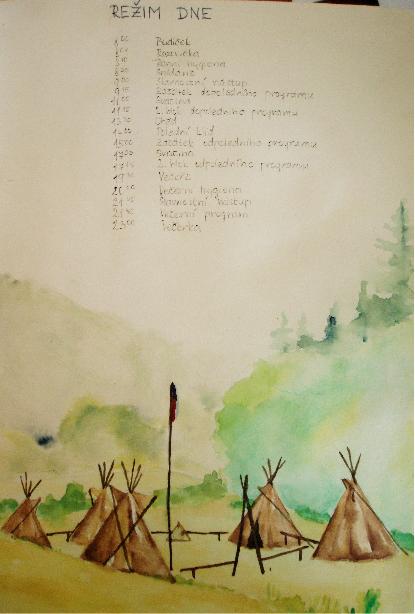 REŽIM DNE
8⁰⁰ Budíček
Rozcvička
Ranní hygiena
Snídaně
9⁰⁰ Slavnostní nástup
9¹⁵ Začátek dopoledního programu
11⁰⁰ Svačina
11¹⁵ 2. blok dopoledního programu
Oběd
Polední klid
15⁰⁰ Začátek odpoledního programu
17⁰⁰ Svačina
17¹⁵ 2. blok odpoledního programu
19³⁰ Večeře
20⁰⁰ Večerní hygiena
Slavnostní nástup
21³⁰ Večerní program
23⁰⁰ Večerka